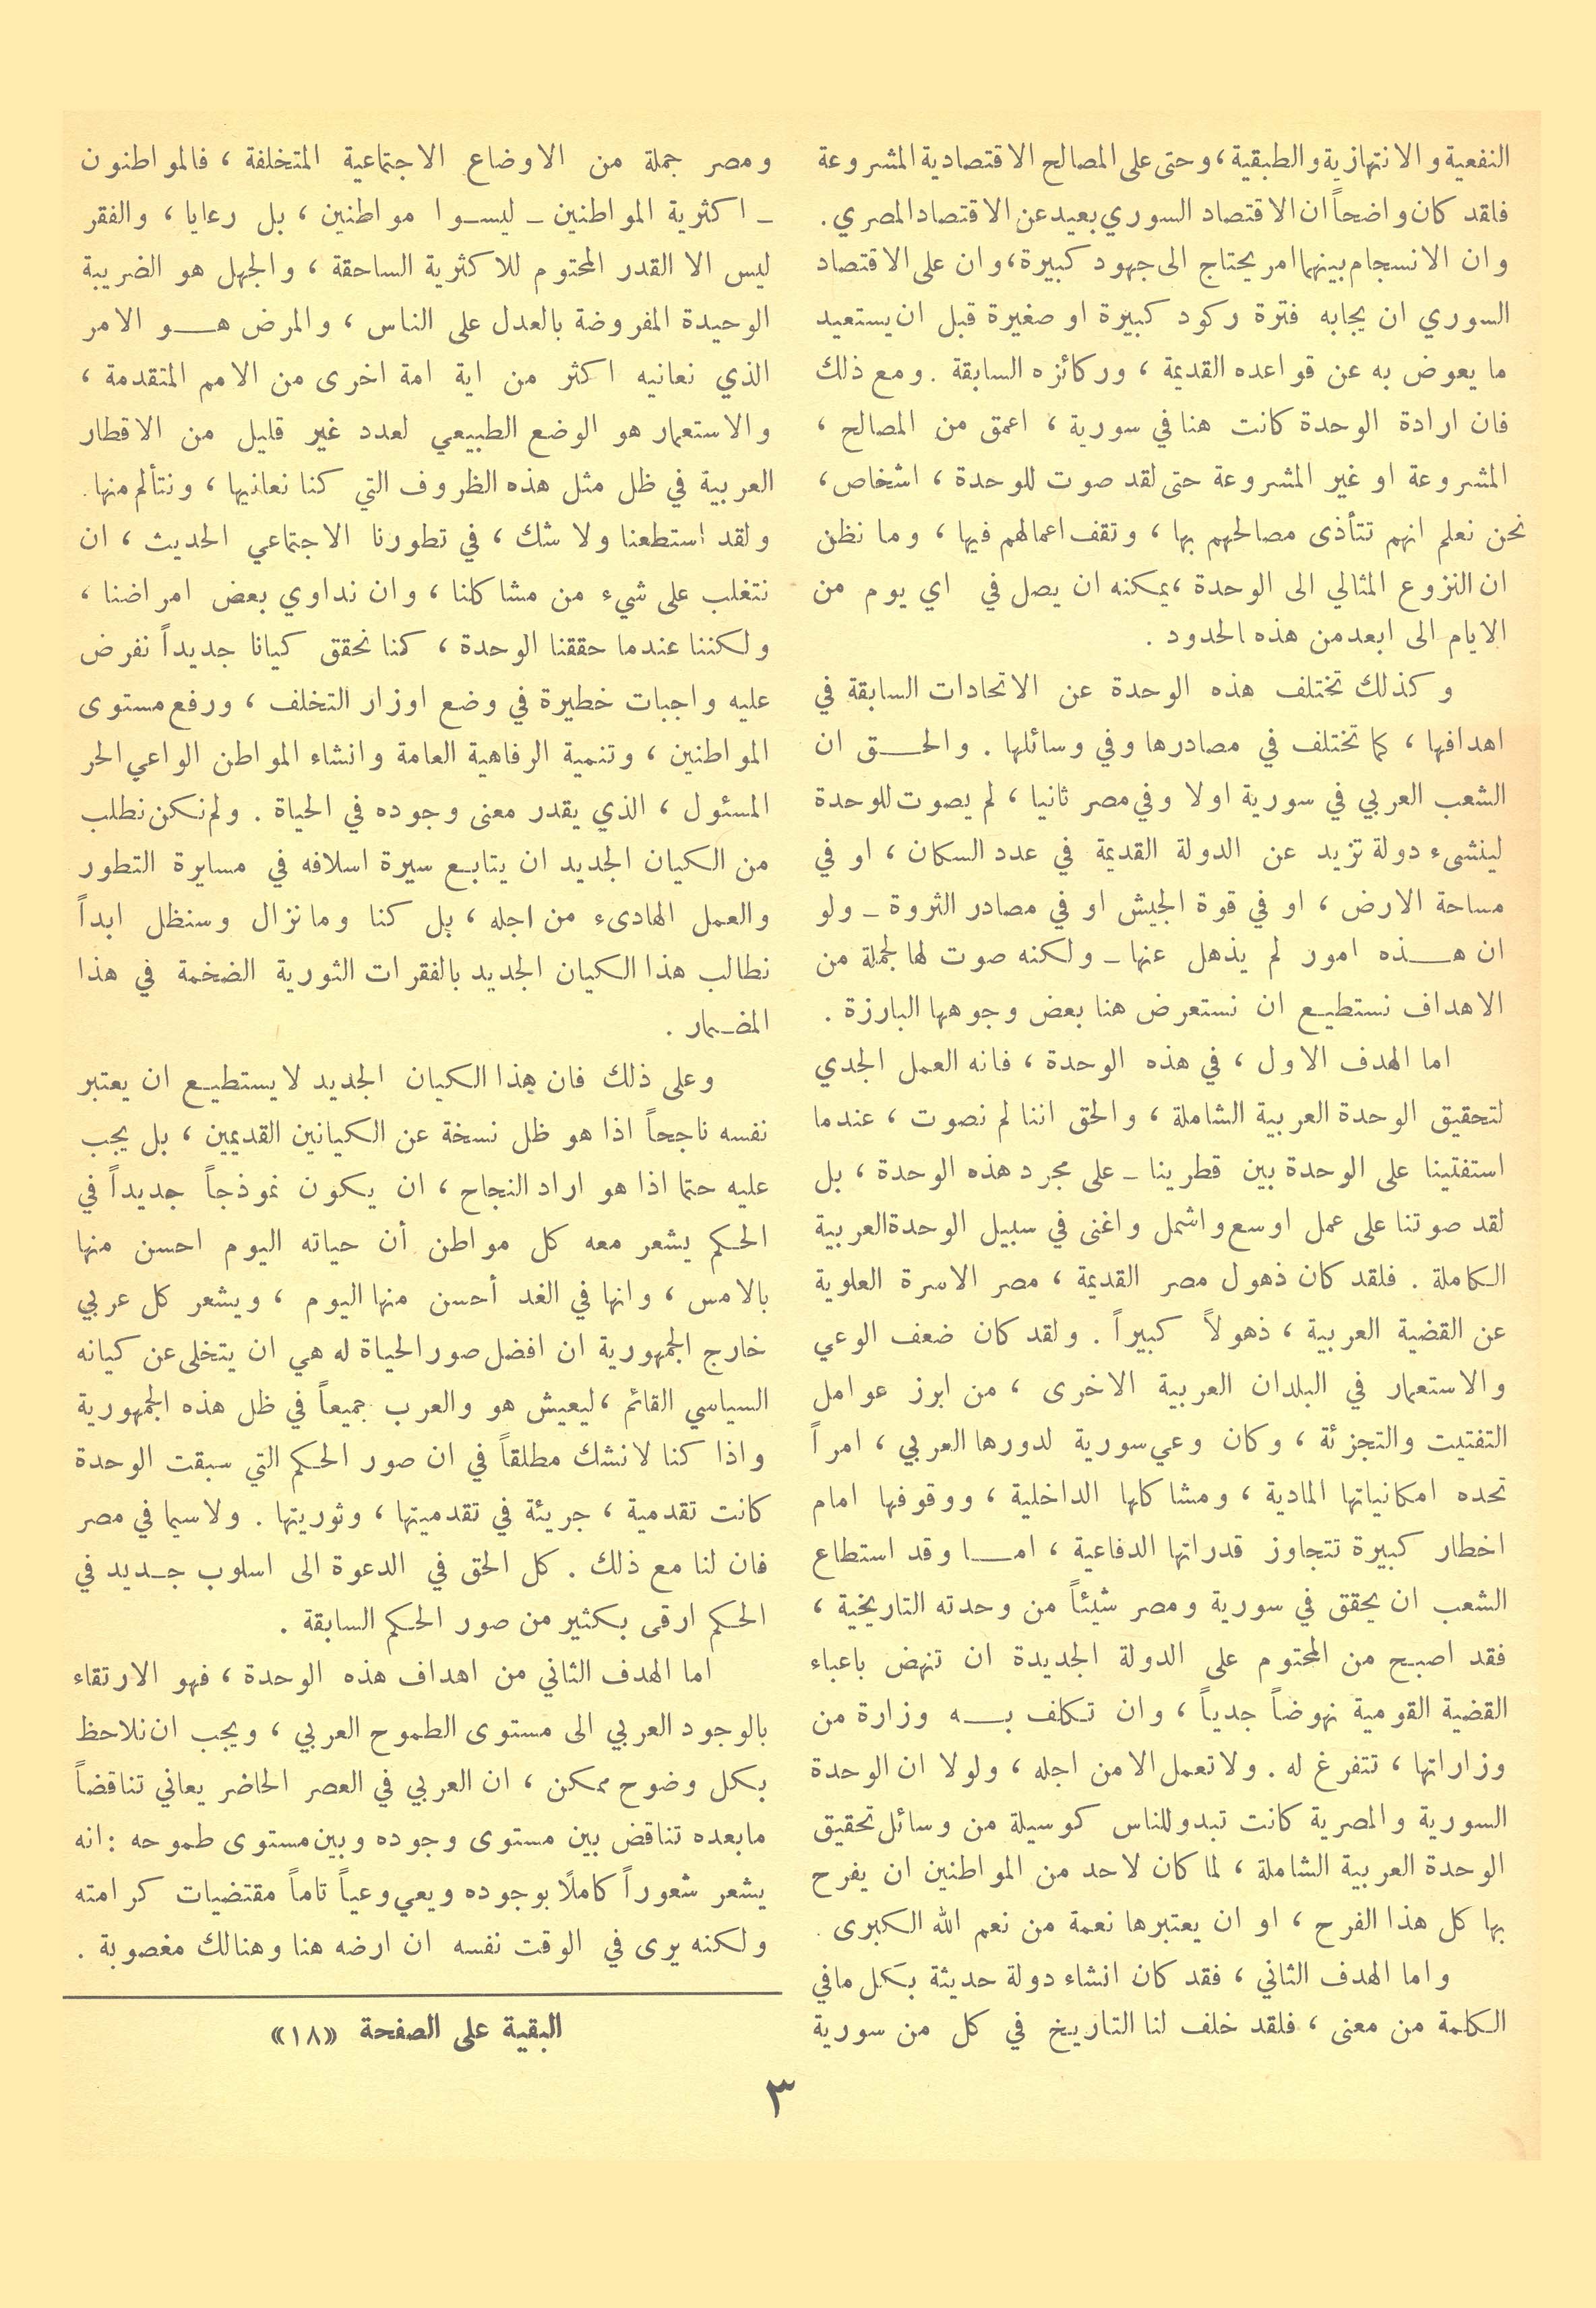 النفعية والانتهازية والطبقية ، وحتى على المصالح الاقتصادية المشروعة
فلقد كان واضحاً ان الاقتصاد السوري بعيد عن الاقتصاد المصري .
وان الانسجام بينهما امر يحتاج الى جهود كبيرة ، وان على الاقتصاد
السوري ان يجابه فترة ركود كبيرة او صغيرة قبل ان يستعيد
ما يعوض به عن قواعده القديمة ، وركائزه السابقة . ومع ذلك
فان ارادة الوحدة كانت هنا في سورية ، اعمق من المصالح ،
المشروعة او غير المشروعة حتى لقد صوت للوحدة ، اشخاص ،
نحن نعلم انهم تتأذى مصالحهم بها ، وتقف اعمالهم فيها ، وما نظن
ان النزوع المثالي الى الوحدة ، يمكنه ان يصل في اي يوم من
الايام الى ابعد من هذه الحدود .
وكذلك تختلف هذه الوحدة عن الاتحادات السابقة في
اهدافها ، كما تختلف في مصادرها وفي وسائلها . والحق ان
الشعب العربي في سورية اولا وفي مصر ثانيا ، لم يصوت للوحدة
لينشىء دولة تزيد عن الدولة القديمة في عدد السكان ، او في
مساحة الارض ، او في قوة الجيش او في مصادر الثروة ـ ولو
ان هذه امور لم يذهل عنها ـ ولكنه صوت لها لجملة من
الاهداف نستطيع ان نستعرض هنا بعض وجوهها البارزة .
اما الهدف الاول ، في هذه الوحدة ، فانه العمل الجدي
لتحقيق الوحدة العربية الشاملة ، والحق اننا لم نصوت ، عندما
استفتينا على الوحدة بين قطرينا ـ على مجرد هذه الوحدة ، بل
لقد صوتنا على عمل اوسع واشمل واغنى في سبيل الوحدة العربية
الكاملة . فلقد كان ذهول مصر القديمة ، مصر الاسرة العلوية
عن القضية العربية ، ذهولاً كبيراً . ولقد كان ضعف الوعي
والاستعمار في البلدان العربية الاخرى ، من ابرز عوامل
التفتيت والتجزئة ، وكان وعي سورية لدورها العربي ، امراً
تحده امكانياتها المادية ، ومشاكلها الداخلية ، ووقوفها امام
اخطار كبيرة تتجاوز قدراتها الدفاعية ، اما وقد استطاع
الشعب ان يحقق في سورية ومصر شيئاً من وحدته التاريخية ،
فقد اصبح من المحتوم على الدولة الجديدة ان تنهض باعباء
القضية القومية نهوضاً جدياً ، وان تكلف به وزارة من
وزاراتها ، تتفرغ له . ولا تعمل الا من اجله ، ولولا ان الوحدة
السورية والمصرية كانت تبدو للناس كوسيلة من وسائل تحقيق
الوحدة العربية الشاملة ، لما كان لاحد من المواطنين ان يفرح
بها كل هذا الفرح ، او ان يعتبرها نعمة من نعم الله الكبرى .
واما الهدف الثاني ، فقد كان انشاء دولة حديثة بكل ما في
الكلمة من معنى ، فلقد خلف لنا التاريخ في كل من سورية
ومصر جملة من الاوضاع الاجتماعية المتخلفة ، فالمواطنون
ـ اكثرية المواطنين ـ ليسوا مواطنين ، بل رعايا ، والفقر
ليس الا القدر المحتوم للاكثرية الساحقة ، والجهل هو الضريبة
الوحيدة المفروضة بالعدل على الناس ، والمرض هو الامر
الذي نعانيه اكثر من اية امة اخرى من الامم المتقدمة ،
والاستعمار هو الوضع الطبيعي لعدد غير قليل من الاقطار
العربية في ظل مثل هذه الظروف التي كنا نعانيها ، ونتألم منها .
ولقد استطعنا ولا شك ، في تطورنا الاجتماعي الحديث ، ان
نتغلب على شيء من مشاكلنا ، وان نداوي بعض امراضنا ،
ولكننا عندما حققنا الوحدة ، كنا نحقق كيانا جديداً نفرض
عليه واجبات خطيرة في وضع اوزار التخلف ، ورفع مستوى
المواطنين ، وتنمية الرفاهية العامة وانشاء المواطن الواعي الحر
المسئول ، الذي يقدر معنى وجوده في الحياة . ولم نكن نطلب
من الكيان الجديد ان يتابع سيرة اسلافه في مسايرة التطور
والعمل الهادىء من اجله ، بل كنا وما نزال وسنظل ابداً
نطالب هذا الكيان الجديد بالفقرات الثورية الضخمة في هذا
المضمار .
وعلى ذلك فان هذا الكيان الجديد لا يستطيع ان يعتبر
نفسه ناجحاً اذا هو ظل نسخة عن الكيانين القديمين ، بل يجب
عليه حتما اذا هو اراد النجاح ، ان يكون نموذجاً جديداً في
الحكم يشعر معه كل مواطن أن حياته اليوم احسن منها
بالامس ، وانها في الغد أحسن منها اليوم ، ويشعر كل عربي
خارج الجمهورية ان افضل صور الحياة له هي ان يتخلى عن كيانه
السياسي القائم ، ليعيش هو والعرب جميعاً في ظل هذه الجمهورية
واذا كنا لا نشك مطلقاً في ان صور الحكم التي سبقت الوحدة
كانت تقدمية ، جريئة في تقدميتها ، وثوريتها . ولا سيما في مصر
فان لنا مع ذلك . كل الحق في الدعوة الى اسلوب جديد في
الحكم ارقى بكثير من صور الحكم السابقة .
اما الهدف الثاني من اهداف هذه الوحدة ، فهو الارتقاء
بالوجود العربي الى مستوى الطموح العربي ، ويجب ان نلاحظ
بكل وضوح ممكن ، ان العربي في العصر الحاضر يعاني تناقضاً
ما بعده تناقض بين مستوى وجوده وبين مستوى طموحه : انه
يشعر شعوراً كاملاً بوجوده ويعي وعياً تاماً مقتضيات كرامته
ولكنه يرى في الوقت نفسه ان ارضه هنا وهنالك مغصوبة .
البقية على الصفحة «١٨»
٣